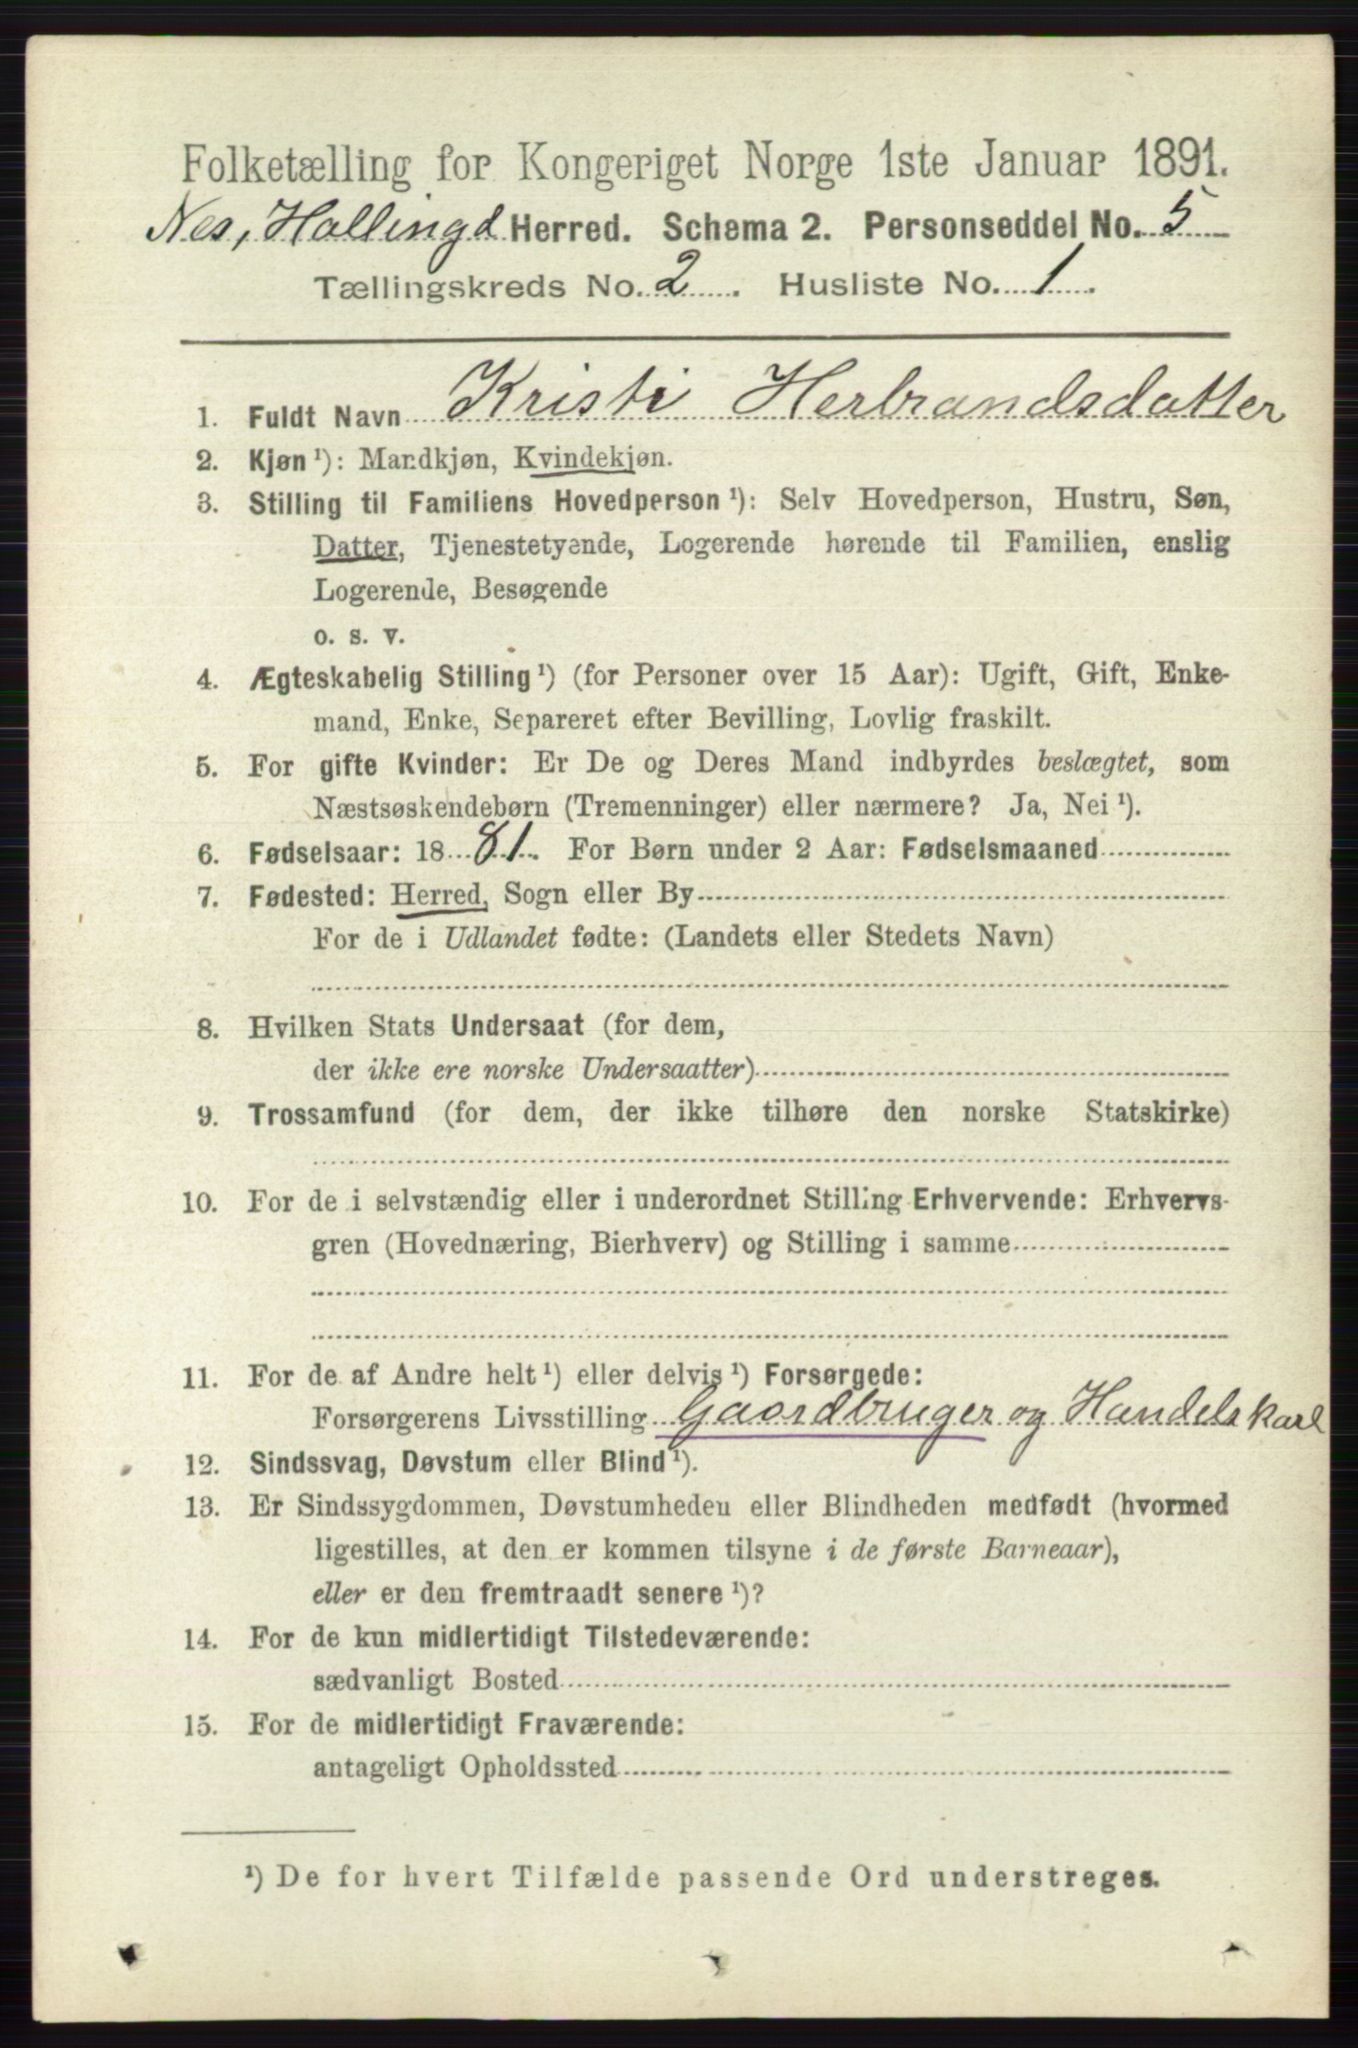 Folketælling for Kongeriget Norge 1ste Januar 1891.
Nes, Hallingd Herred. Schema 2. Personseddel No. 5
Tællingskreds No. 2. Husliste No. 1.
1. Fuldt Navn Kristi Herbrandsdatter
2. Kjøn ¹): Mandkjøn, Kvindekjøn.
3. Stilling til Familiens Hovedperson ¹): Selv Hovedperson, Hustru, Søn,
Datter, Tjenestetyende, Logerende hørende til Familien, enslig
Logerende, Besøgende
o. s. v.
4. Ægteskabelig Stilling ¹) (for Personer over 15 Aar): Ugift, Gift, Enke-
mand, Enke, Separeret efter Bevilling, Lovlig fraskilt.
5. For gifte Kvinder: Er De og Deres Mand indbyrdes beslægtet, som
Næstsøskendebørn (Tremenninger) eller nærmere? Ja, Nei ¹).
6. Fødselsaar: 1881. For Børn under 2 Aar: Fødselsmaaned
7. Fødested: Herred, Sogn eller By
For de i Udlandet fødte: (Landets eller Stedets Navn)
8. Hvilken Stats Undersaat (for dem,
der ikke ere norske Undersaatter)
9. Trossamfund (for dem, der ikke tilhøre den norske Statskirke)
10. For de i selvstændig eller i underordnet Stilling Erhvervende: Erhvervs-
gren (Hovednæring, Bierhverv) og Stilling i samme
11. For de af Andre helt ¹) eller delvis ¹) Forsørgede:
Forsørgerens Livsstilling Gaardbruger og Handelskarl
12. Sindssvag, Døvstum eller Blind ¹).
13. Er Sindssygdommen, Døvstumheden eller Blindheden medfødt (hvormed
ligestilles, at den er kommen tilsyne i de første Barneaar),
eller er den fremtraadt senere ¹)?
14. For de kun midlertidigt Tilstedeværende:
sædvanligt Bosted
15. For de midlertidigt Fraværende:
antageligt Opholdssted
¹) De for hvert Tilfælde passende Ord understreges.